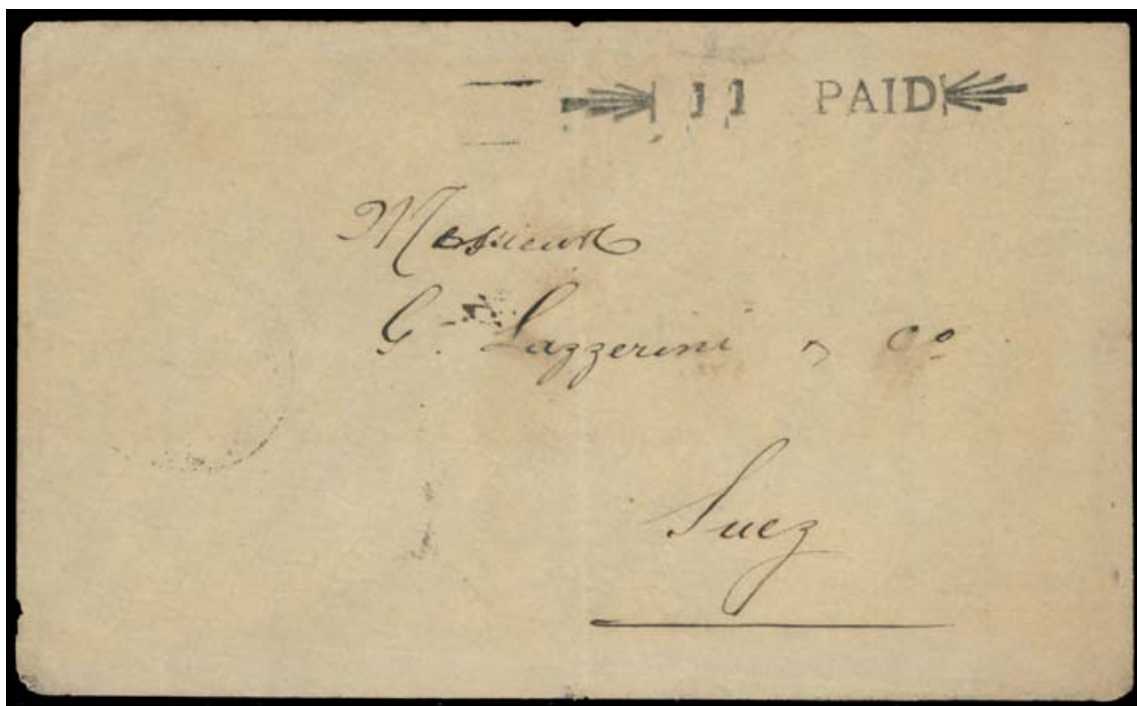 11 PAID
Messieurs
G. Lazzerini & Co
Suez